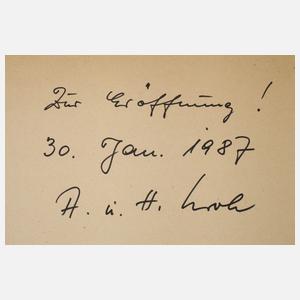 Zur Eröffnung!
30. Jan. 1987
A. u. H.